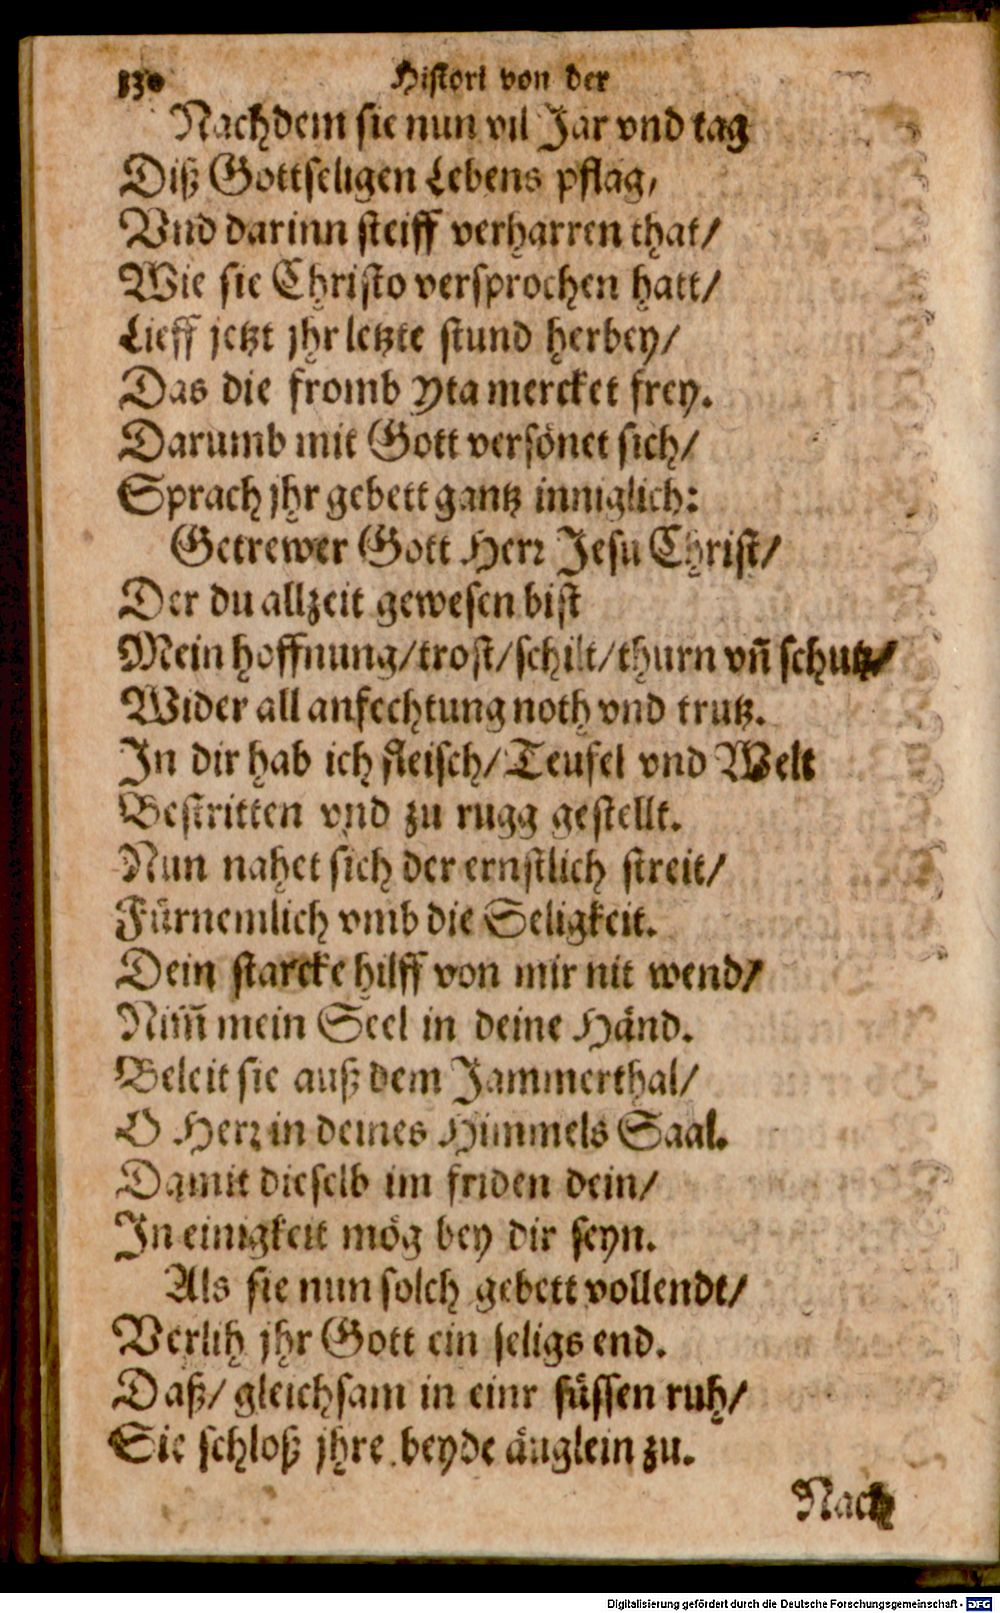 130 Histori von der
Nachdem sie nun vil Jar vnd tag
Diß Gottseligen Lebens pflag,
Vnd darinn steiff verharren that/
Wie sie Christo versprochen hatt/
Lieff jetzt jhr letzte stund herbey/
Das die fromb Yta mercket frey.
Darumb mit Gott versönet sich/
Sprach jhr gebett gantz inniglich:
Getrewer Gott Herr Jesu Christ/
Der du allzeit gewesen bist
Mein hoffnung/trost/schilt/thurn vñ schutz/
Wider all anfechtung noth vnd trutz.
In dir hab ich fleisch/Teufel vnd Welt
Bestritten vnd zu rugg gestellt.
Nun nahet sich der ernstlich streit/
Fürnemlich vmb die Seligkeit.
Dein starcke hilff von mir nit wend/
Nim̃ mein Seel in deine Händ.
Beleit sie auß dem Jammerthal/
O Herr in deines Himmels Saal.
Damit dieselb im friden dein/
In einigkeit mög bey dir seyn.
Als sie nun solch gebett vollendt/
Verlih jhr Gott ein seligs end.
Daß/ gleichsam in einr süssen ruh/
Sie schloß jhre beyde äuglein zu.
Nach
Digitalisierung gefördert durch die Deutsche Forschungsgemeinschaft - DFG